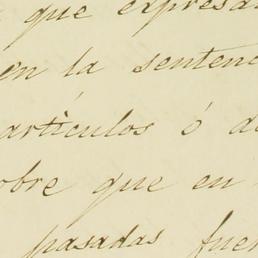 que expresa
en la sentenc
artículos ó d
obre que en
pasadas fuer